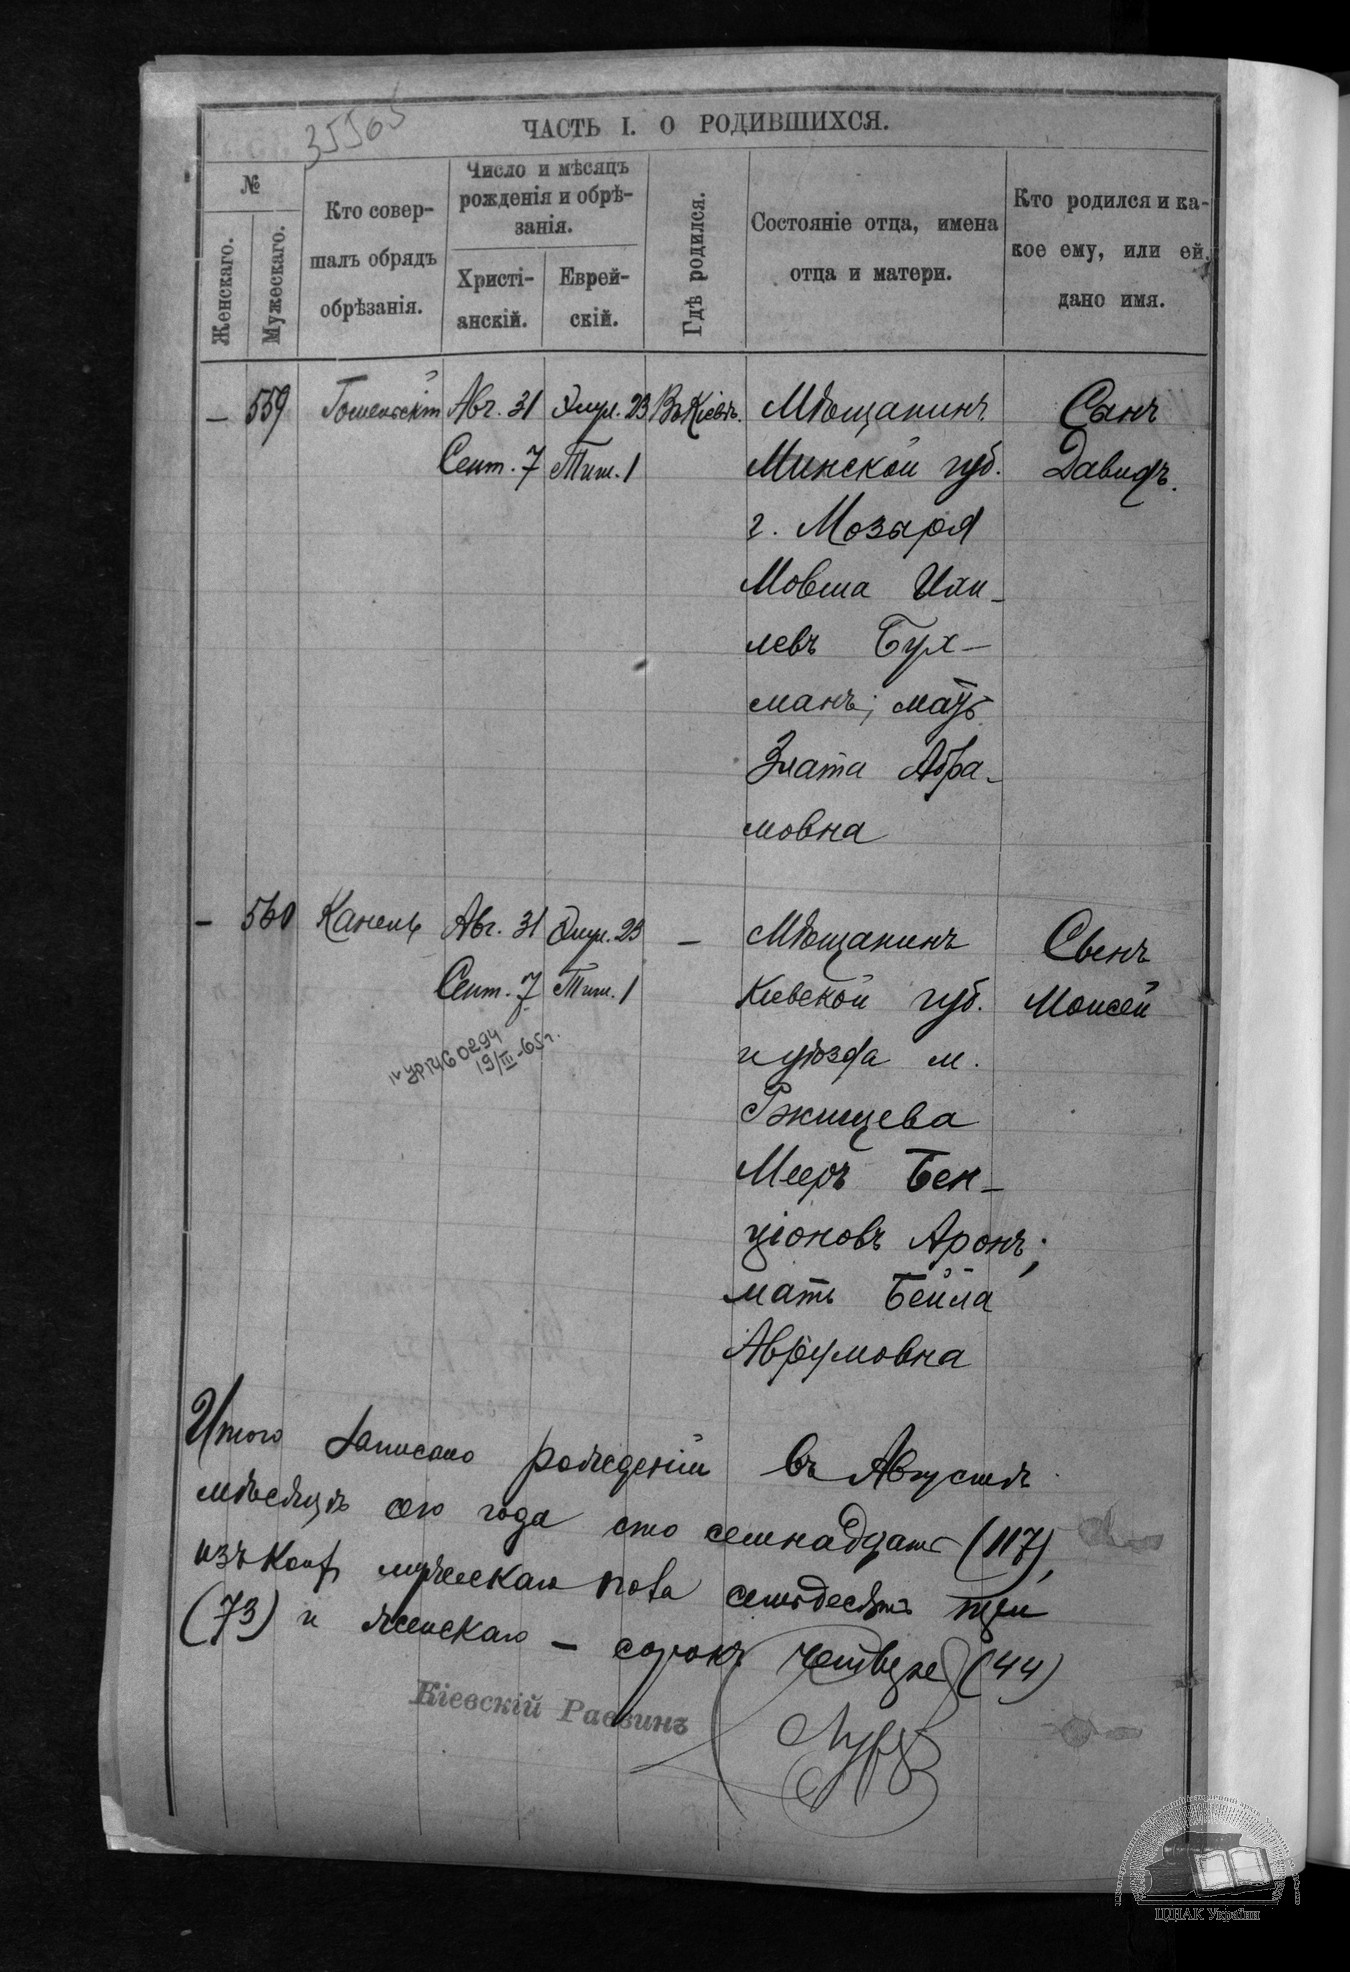 35565
ЧАСТЬ I. О РОДИВШИХСЯ.
№
Женскаго.
Мужескаго.
Кто совер-
шалъ обрядъ
обрѣзанія.
Число и мѣсяцъ
рожденія и обрѣ-
занія.
Христі-
анскій.
Еврей-
скій.
Гдѣ родился.
Состояніе отца, имена
отца и матери.
Кто родился и ка-
кое ему, или ей,
дано имя.
— 559 Гомельскій Авг. 31 Элул. 23 Въ Кіевѣ. Мѣщанинъ Сынъ
Сент. 7 Тиш. 1 Минской губ. Давидъ.
г. Мозыря
Мовша Ихи-
левъ Бух-
манъ; мать
Злата Абра-
мовна
— 560 Канель Авг. 31 Элул. 23 — Мѣщанинъ Сынъ
Сент. 7 Тиш. 1 Кіевской губ. Моисей
и уѣзда м.
Ржищева
Мееръ Бен-
ціоновъ Аронъ;
мать Бейла
Аврумовна
0294
19/III-65г.
Итого записано рожденій въ Августѣ
мѣсяцѣ сего года сто семнадцать (117),
изъ коихъ мужескаго пола семьдесятъ три
(73) и женскаго — сорокъ четыре (44)
Кіевскій Раввинъ
ЦДІАК України